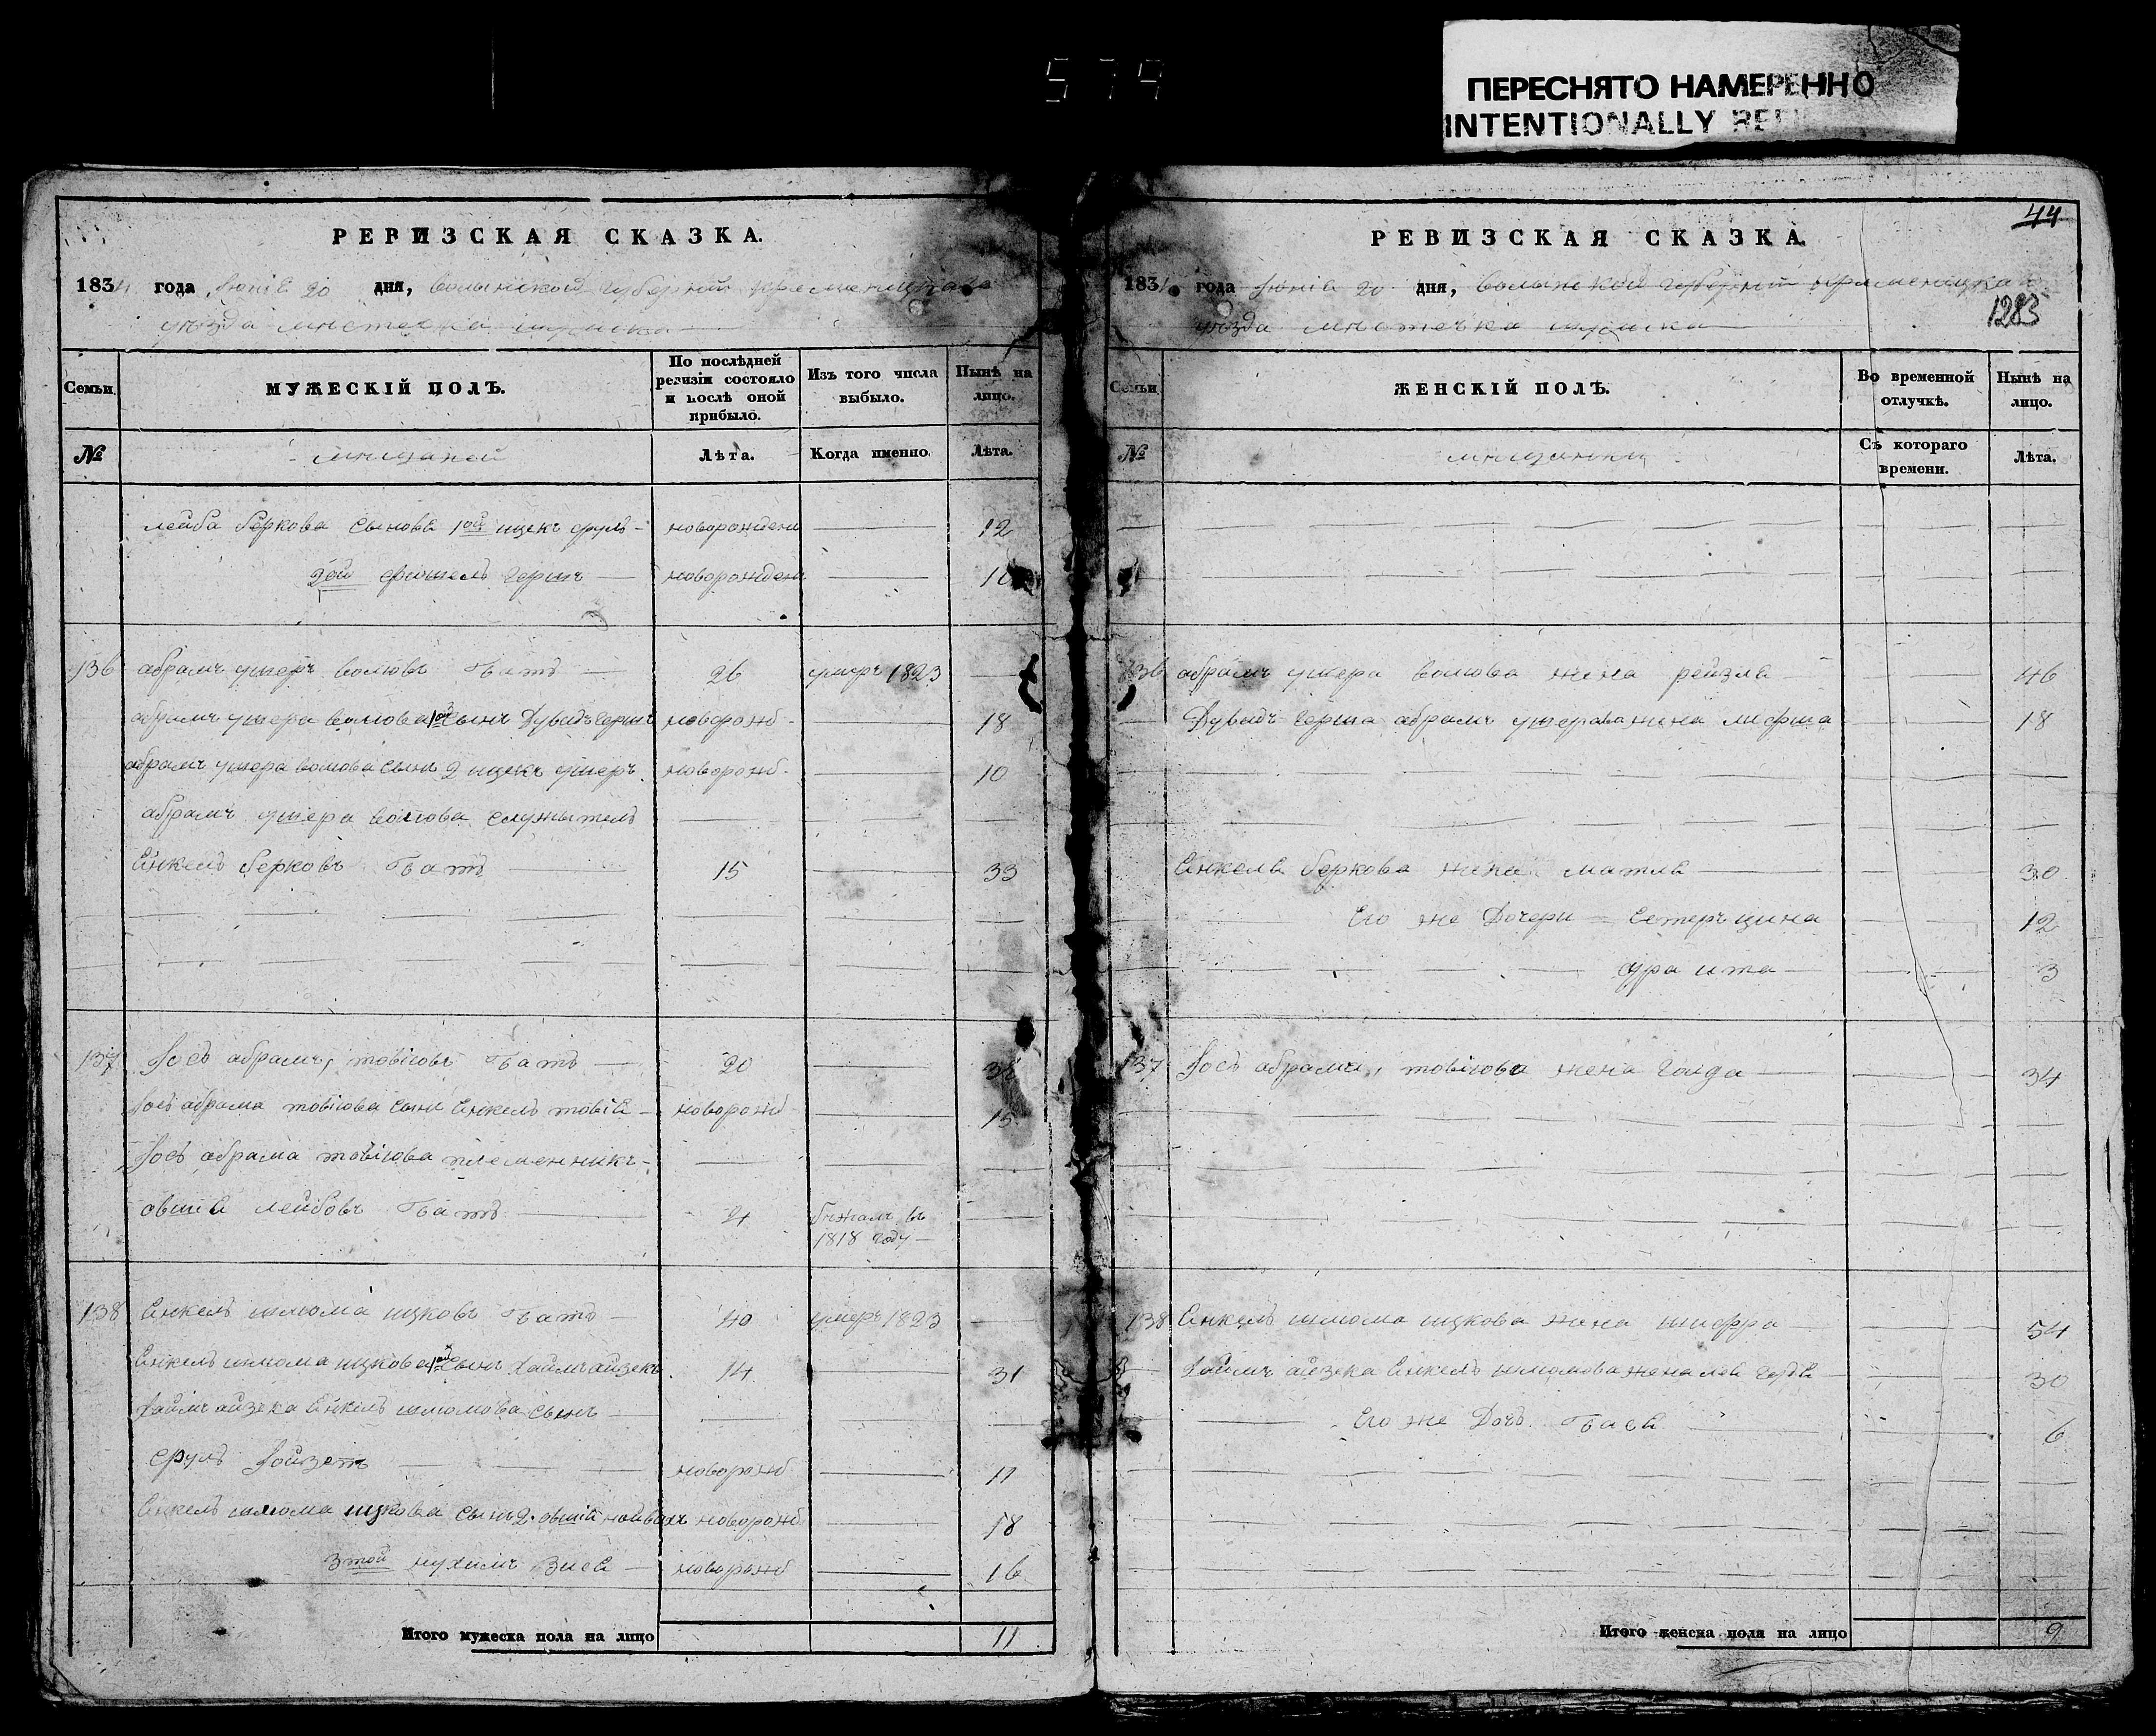 579
ПЕРЕСНЯТО НАМЕРЕННО
INTENTIONALLY
РЕВИЗСКАЯ СКАЗКА.
1834 года Июнiя 20 дня, волынской губернии кременецкаго
уезда местечка шумска
Семьи.
МУЖЕСКIЙ ПОЛЪ.
По послѣдней ревизiи состояло и послѣ оной прибыло.
Изъ того числа выбыло.
Нынѣ на лицо.
№
мещаней
Лѣта.
Когда именно.
Лѣта.
лейба беркова сыновя 1ой ицекъ сруль новорожден 12
2ой фишель гершъ новорожден
136 абрамъ ушеръ волковъ батъ 26 умеръ 1823
абрамъ ушера волкова 1ой сынъ Дувидъ гершъ новорожд 18
абрамъ ушера волкова сынъ 2 ицекъ ушеръ новорожд 10
абрамъ ушера волкова служитель
Енкель берковъ батъ 15 33
137 Иось абрамъ, товiевъ батъ 20 38
Иось абрама товiева сынъ Енкель товiя новорожд 15
Иось абрама товiева племенникъ
овшiя лейбовъ батъ 21 бежалъ въ
1818 году
138 Енкель шлиома ицковъ батъ 40 умеръ 1823
Енкель шлиома ицкова 1ой сынъ Хаимъ айзекъ 14 31
Хаимъ айзека Енкель шлиомова сынъ
сруль новорожд 11
Енкель шлиома ицкова сынъ 2. овшiй новорожд 18
3той нухимъ зися новорожд 16
Итого мужеска пола на лицо 11
44
РЕВИЗСКАЯ СКАЗКА.
1834 года Июнiя 20 дня, волынской губернии кременецкаго
1283
уезда местечка шумска
Семьи
ЖЕНСКIЙ ПОЛЪ.
Во временной отлучкѣ.
Нынѣ на лицо.
№
мещанки
Съ котораго времени.
Лѣта.
136 абрамъ ушера волкова жена рейзля 46
Дувидъ герша абрамъ ушерова жена 18
Енкеля беркова жена матля 30
Его же Дочери Естеръ цина 12
сура ита 3
137 Иось абрама, товiева жена голда 34
138 Енкель шлиома ицкова жена шифра 54
Хаимъ айзека Енкель шлиомова жена лея 30
Его же Дочь бася 6
Итого женска пола на лицо 9